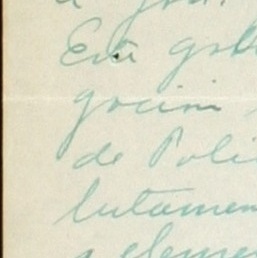 Este gob
gocini
de Poli
lutamen
elemen